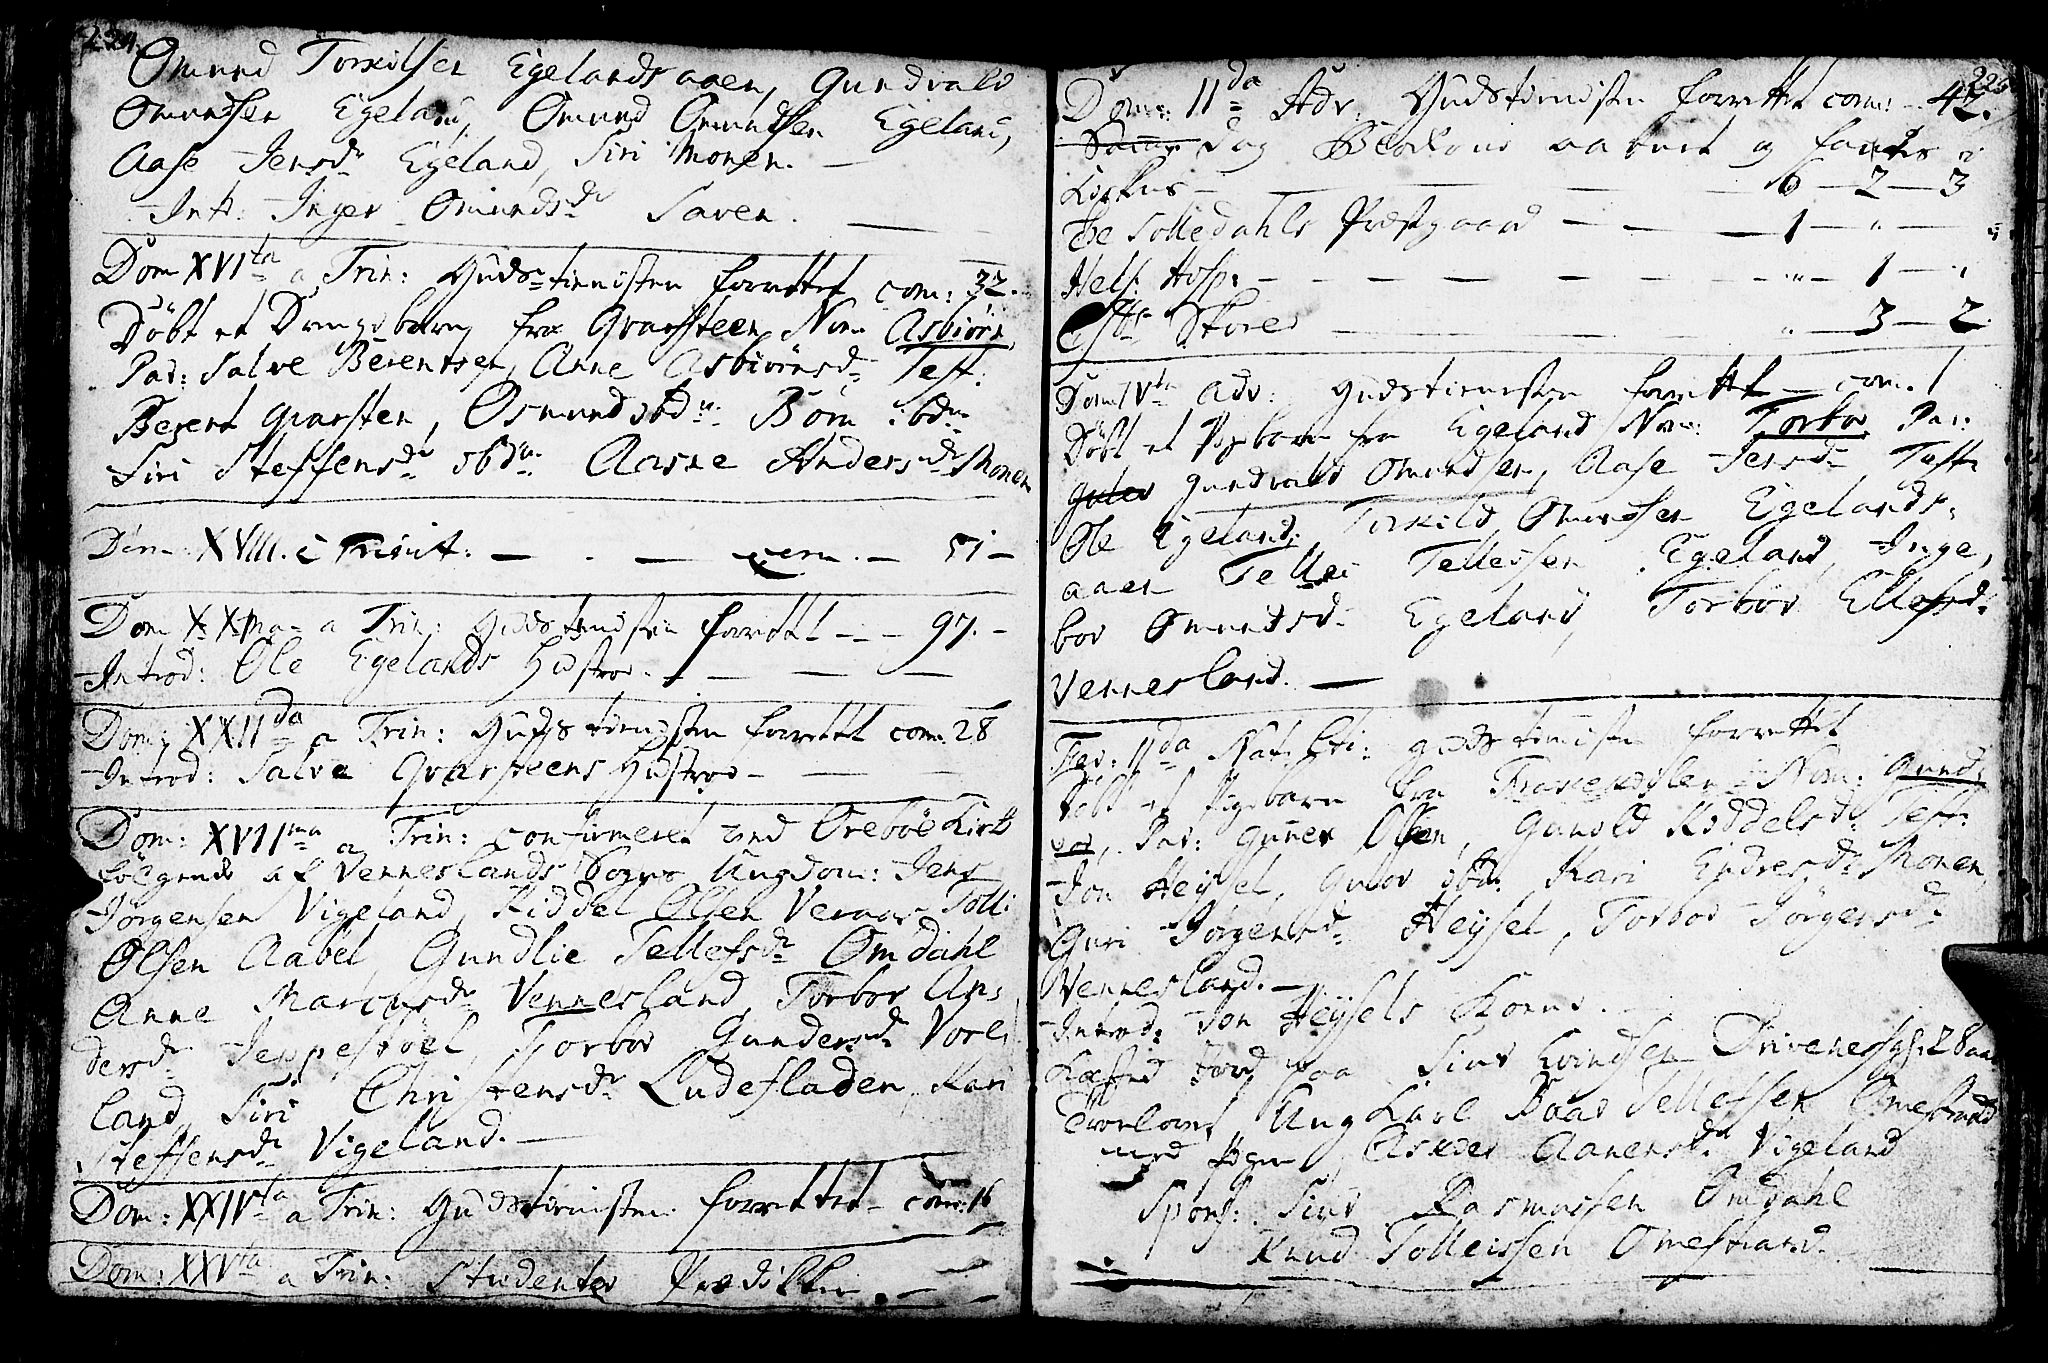 224.
Omund Torkilsen Egelandsaaen, Gundvald
Omundsen Egeland, Omund Omundsen Egeland,
Aase Jensdr Egeland, Siri Monen. —
Int: Inger Omundsdr Saven. —
Dom XVIta a Trin: Gudstienisten forrettet com: 32.
Döbt et Drengebarn fra Qvarsteen, Nom: Asbiörn
Par: Salve Berentsen, Anne Asbiörnsdr Test:
Berent Qvarsten, Osmund ibdm: Börn ibdm
Siri Steffensdr ibdm: Aasne Andersdr Monen
Dom: XVIII. à Trinit: — . — com. — 51 —
Dom XXma a Trin: Gudstienisten forrettet — — 97. —
Introd: Ole Egelands Hustroe. — — — —
Dom: XXIIda a Trin: Gudstienisten forrettet com: 28
Introd: Salve Qvarsteens Hustroe — — —
Dom: XVIIma a Trin: confirmeret ved Oreböe Kirke
fölgende af Venneslands Sogns Ungdom: Jens
Jörgensen Vigeland, Kiddel Olsen Veraas, Tolli
Olsen Aabel, Gundlie Tellefsdr Omdahl
Anne Marcusdr Vennesland, Torbor An,
dersdr Jeppestöel, Torbor Gundersdr Vore,
land, Siri Christensdr Ludefladen, Kari
Steffensdr Vigeland. —
Dom: XXIVta a Trin: Gudstienisten forrettet — com: 16
Dom: XXVta a Trin: Studenter Prædikken. — —
Dom: IIda Adv: Gudstienisten forrettet com: — 42.
dag Blokkene aabnet og fantes i
Kirkens — — — — 6 — 2 — 3
Tolledahls Præstgaard — — — 1 — " —
Hels: Hosp: — — — — — — " — 1 —
Skoler — — — " — 3 — 2.
Dom IVta Adv: Gudstienisten forrettet — com. 1
Döbt et Pigebarn fra Egeland Nom: Torbor Par:
Gundvald Omundsen, Aase Jensdr Test:
Ole Egeland, Torkild Omundsen Egelands,
aaen Tellef Tellefsen Egeland, Inge,
bor Omundsdr Egeland, Torbor Ellefsd:
Vennesland. —
Fer: IIda Nat: Cti: gudstienisten forrettet
Döbt et Pigebarn fra Nom: Gund,
vor, Par: Guner Olsen, Gunild Kiddelsdr Test:
Jon Heysel, Guror ibdm: Kari Endresdr Monen,
Guri Jörgensdr Heysel, Torbor Jörgensdr
Vennesland. —
Introd: Jon Heysels Kone. —
Kasted Jord paa Siur Evindsen Drivenes gl: 28 aar
Trorlovet Ung Karl Baar Tellefsen Omestrand
med Pigen Asber Aanensdr Vigeland
Spons: Siur Rasmusen Omdahl
Knud Tolleissen Omestrand.